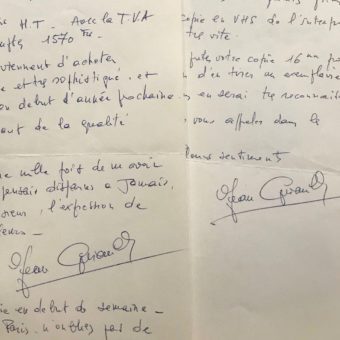 H.T. Avec la T.V.A
1570 Frs.
viennent d'acheter
et très sophistiqué, et
début d'année prochaine
de la qualité
mille fois de m'avoir
pensais disparus a Jamais.
l'expression de
Jean Girault
en debut de semaine -
Paris. n'oubliez pas de
copie en VHS de l'interpr
très vite.
votre copie 16 mm po
d'en tirer un exemplaire
en serai très reconnaiss
vous appeler dans le
sentiments
Jean Girault